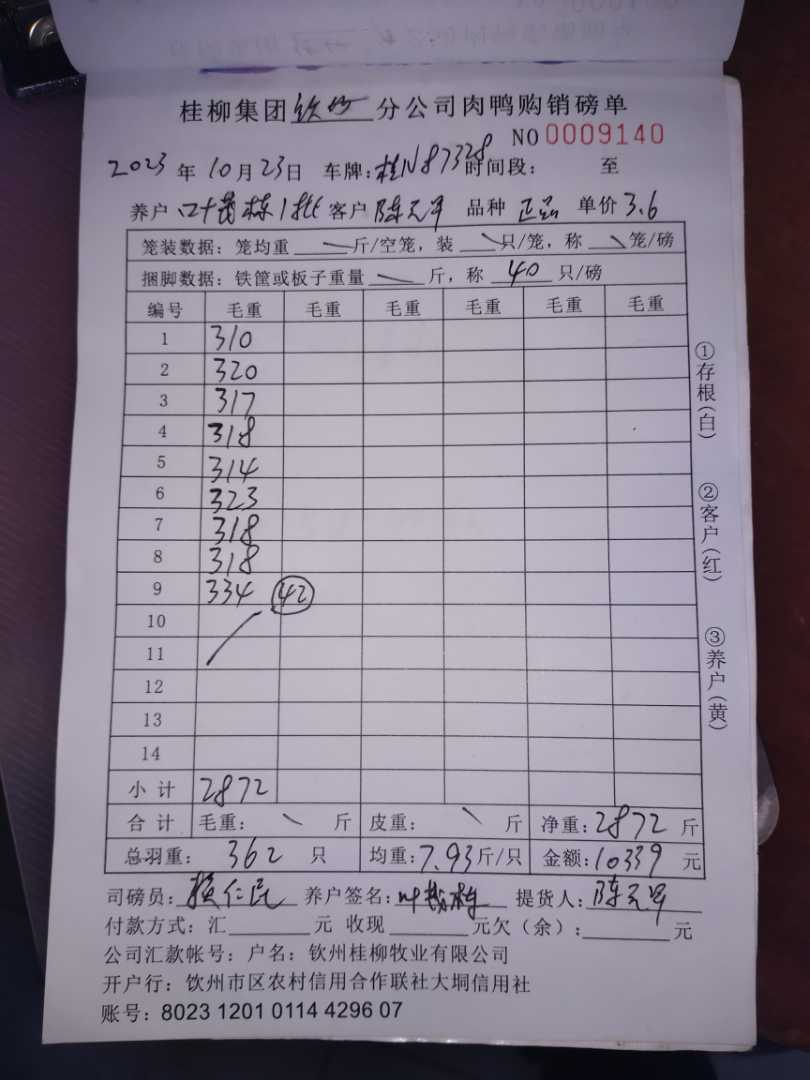 桂柳集团 钦州 分公司肉鸭购销磅单
NO 0009140
2023 年 10 月 23 日 车牌: 桂N87328 时间段: 至
养户 叶茂栋1批 客户 陈元军 品种 正品 单价 3.6
笼装数据: 笼均重 斤/空笼, 装 只/笼, 称 笼/磅
捆脚数据: 铁筐或板子重量 斤, 称 40 只/磅
编号 毛重 毛重 毛重 毛重 毛重 毛重
1 310
2 320
3 317
4 318
5 314
6 323
7 318
8 318
9 334 42
10
11
12
13
14
小计 2872
合计 毛重: 斤 皮重: 斤 净重: 2872 斤
总羽重: 362 只 均重: 7.93 斤/只 金额: 10339 元
司磅员: 仁民 养户签名: 叶茂栋 提货人: 陈元军
付款方式: 汇 元 收现 元欠(余): 元
公司汇款帐号: 户名: 钦州桂柳牧业有限公司
开户行: 钦州市区农村信用合作联社大垌信用社
账号: 8023 1201 0114 4296 07
①存根(白)
②客户(红)
③养户(黄)